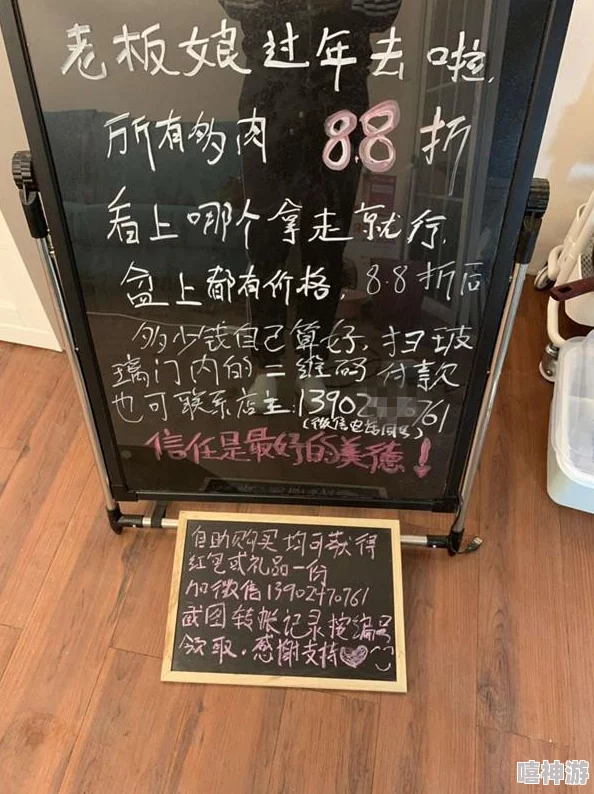 老板娘过年去啦，
所有多肉 8.8 折
看上哪个拿走就行，
盆上都有价格，8.8折后
多少钱自己算好，扫玻
璃门内的二维码付款
也可联系店主：13902 761
(微信电话同号)
信任是最好的美德！
自助购买均可获得
红包或礼品一份
加微信13902470761
截图转帐记录按编号
领取，感谢支持
嘻神游